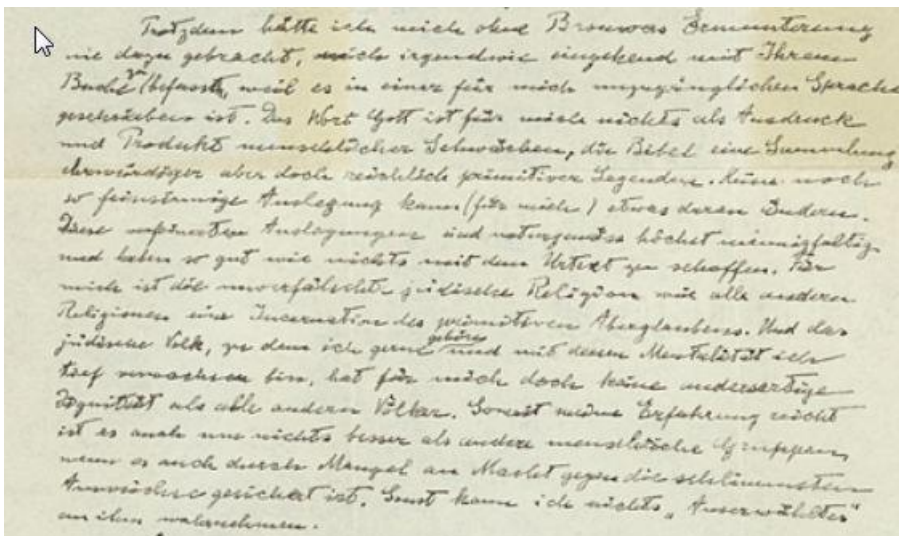 Trotzdem hätte ich mich ohne Brouwers Ermunterung
nie dazu gebracht, mich irgendwie eingehend mit Ihrem
Buche befasst, weil es in einer für mich unzugänglichen Sprache
geschrieben ist. Das Wort Gott ist für mich nichts als Ausdruck
und Produkt menschlicher Schwächen, die Bibel eine Sammlung
ehrwürdiger aber doch reichlich primitiver Legenden. Keine noch
so feinsinnige Auslegung kann (für mich) etwas daran ändern.
Diese verfeinerten Auslegungen sind naturgemäss höchst mannigfaltig
und haben so gut wie nichts mit dem Urtext zu schaffen. Für
mich ist die unverfälschte jüdische Religion wie alle anderen
Religionen eine Incarnation des primitiven Aberglaubens. Und das
jüdische Volk, zu dem ich gerne gehöre und mit dessen Mentalität ich
tief verwachsen bin, hat für mich doch keine andersartige
Dignität als alle anderen Völker. Soweit meine Erfahrung reicht
ist es auch um nichts besser als andere menschliche Gruppen
wenn es auch durch Mangel an Macht gegen die schlimmsten
Auswüchse gesichert ist. Sonst kann ich nichts „Auserwähltes"
an ihm wahrnehmen.